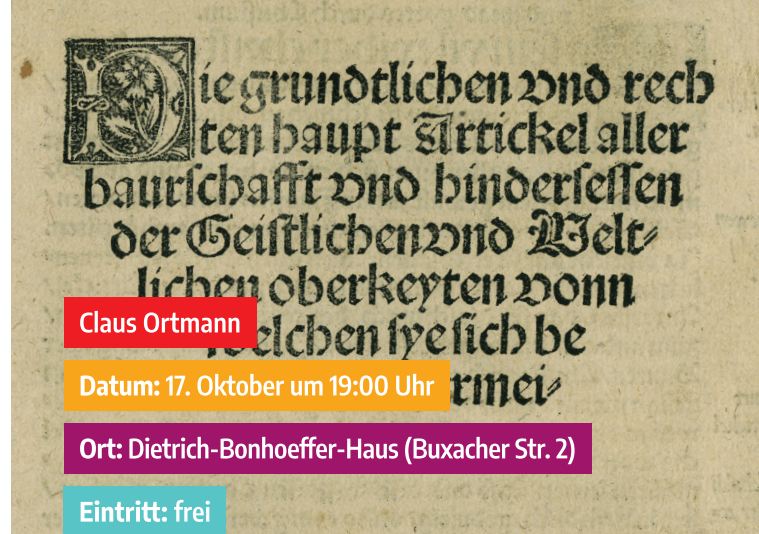 Die grundtlichen vnd rech
ten haupt Artickel aller
baurschafft vnd hindersessen
der Geistlichen vnd Welt⸗
lichen oberkeyten vonn
welchen sye sich be
rmei⸗
Claus Ortmann
Datum: 17. Oktober um 19:00 Uhr
Ort: Dietrich-Bonhoeffer-Haus (Buxacher Str. 2)
Eintritt: frei